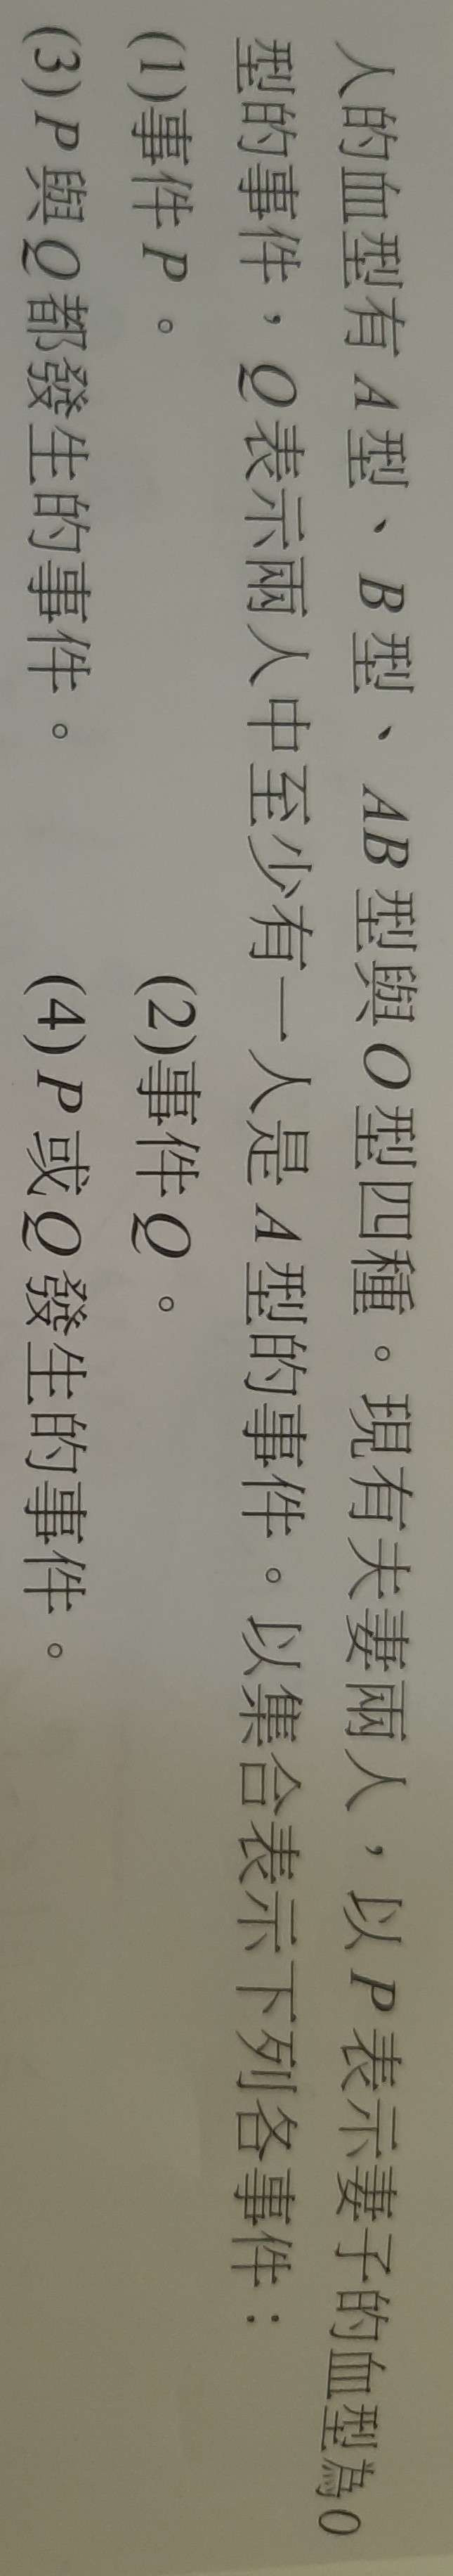 人的血型有 A 型、B 型、AB 型與 O 型四種。現有夫妻兩人，以 P 表示妻子的血型為 O
型的事件，Q 表示兩人中至少有一人是 A 型的事件。以集合表示下列各事件：
(1)事件 P。 (2)事件 Q。
(3) P 與 Q 都發生的事件。 (4) P 或 Q 發生的事件。